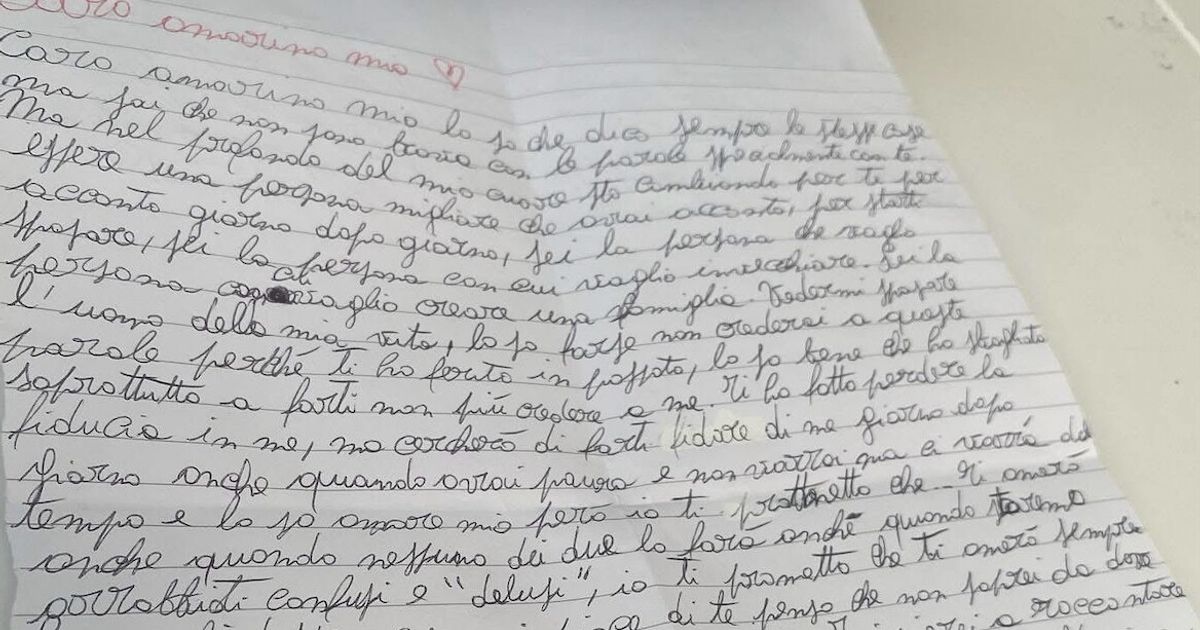 Caro amorino mio ♡
Caro amorino mio lo so che dico sempre le stesse cose
ma sai che non sono brava con le parole specialmente con te.
Ma nel profondo del mio cuore sto cambiando per te per
essere una persona migliore che avrai accanto, per starti
accanto giorno dopo giorno, sei la persona che voglio
sposare, sei la persona con cui voglio invecchiare. Sei la
persona con cui voglio creare una famiglia. Vedermi sposare
l'uomo della mia vita, lo so forse non crederai a queste
parole perché ti ho ferito in passato, lo so bene che ho sbagliato
soprattutto a farti non più credere a me. Ti ho fatto perdere la
fiducia in me, ma cercherò di farti fidare di me giorno dopo
giorno anche quando avrai paura e non vorrai ma ci vorrà del
tempo e lo so amore mio però io ti prometto che.. ti amerò
anche quando nessuno dei due lo farà anche quando staremo
arrabbiati confusi e "delusi", io ti prometto che ti amerò sempre
di te penso che non saprei da dove
a raccontare